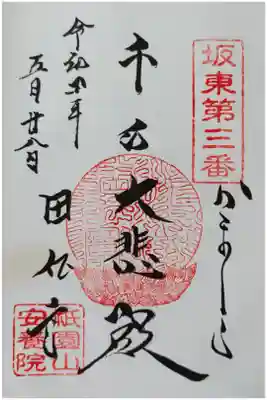 坂東第三番
かまくら
千手大悲殿
田代寺
令和元年
五月廿八日
祇園山
安養院